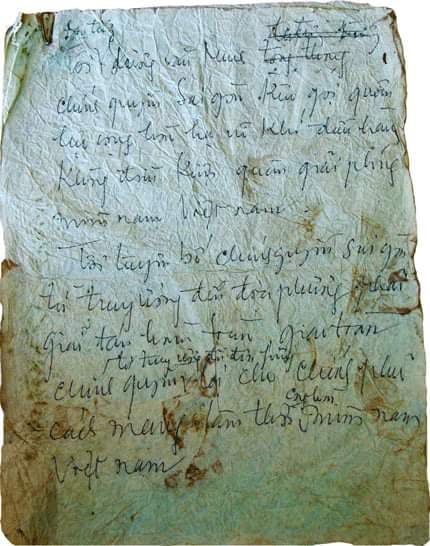 đại tướng
Tôi dương văn Minh tổng thống
chính quyền Sài gòn kêu gọi quân
lực cộng hòa hạ vũ khí đầu hàng
không điều kiện quân giải phóng
miền nam Việt nam
Tôi tuyên bố chính quyền Sài gòn
từ trung ương đến địa phương phải
giải tán hoàn toàn giao toàn
từ trung ương đến địa phương
chính quyền lại cho chính phủ
cộng hòa
cách mạng lâm thời miền nam
Việt nam